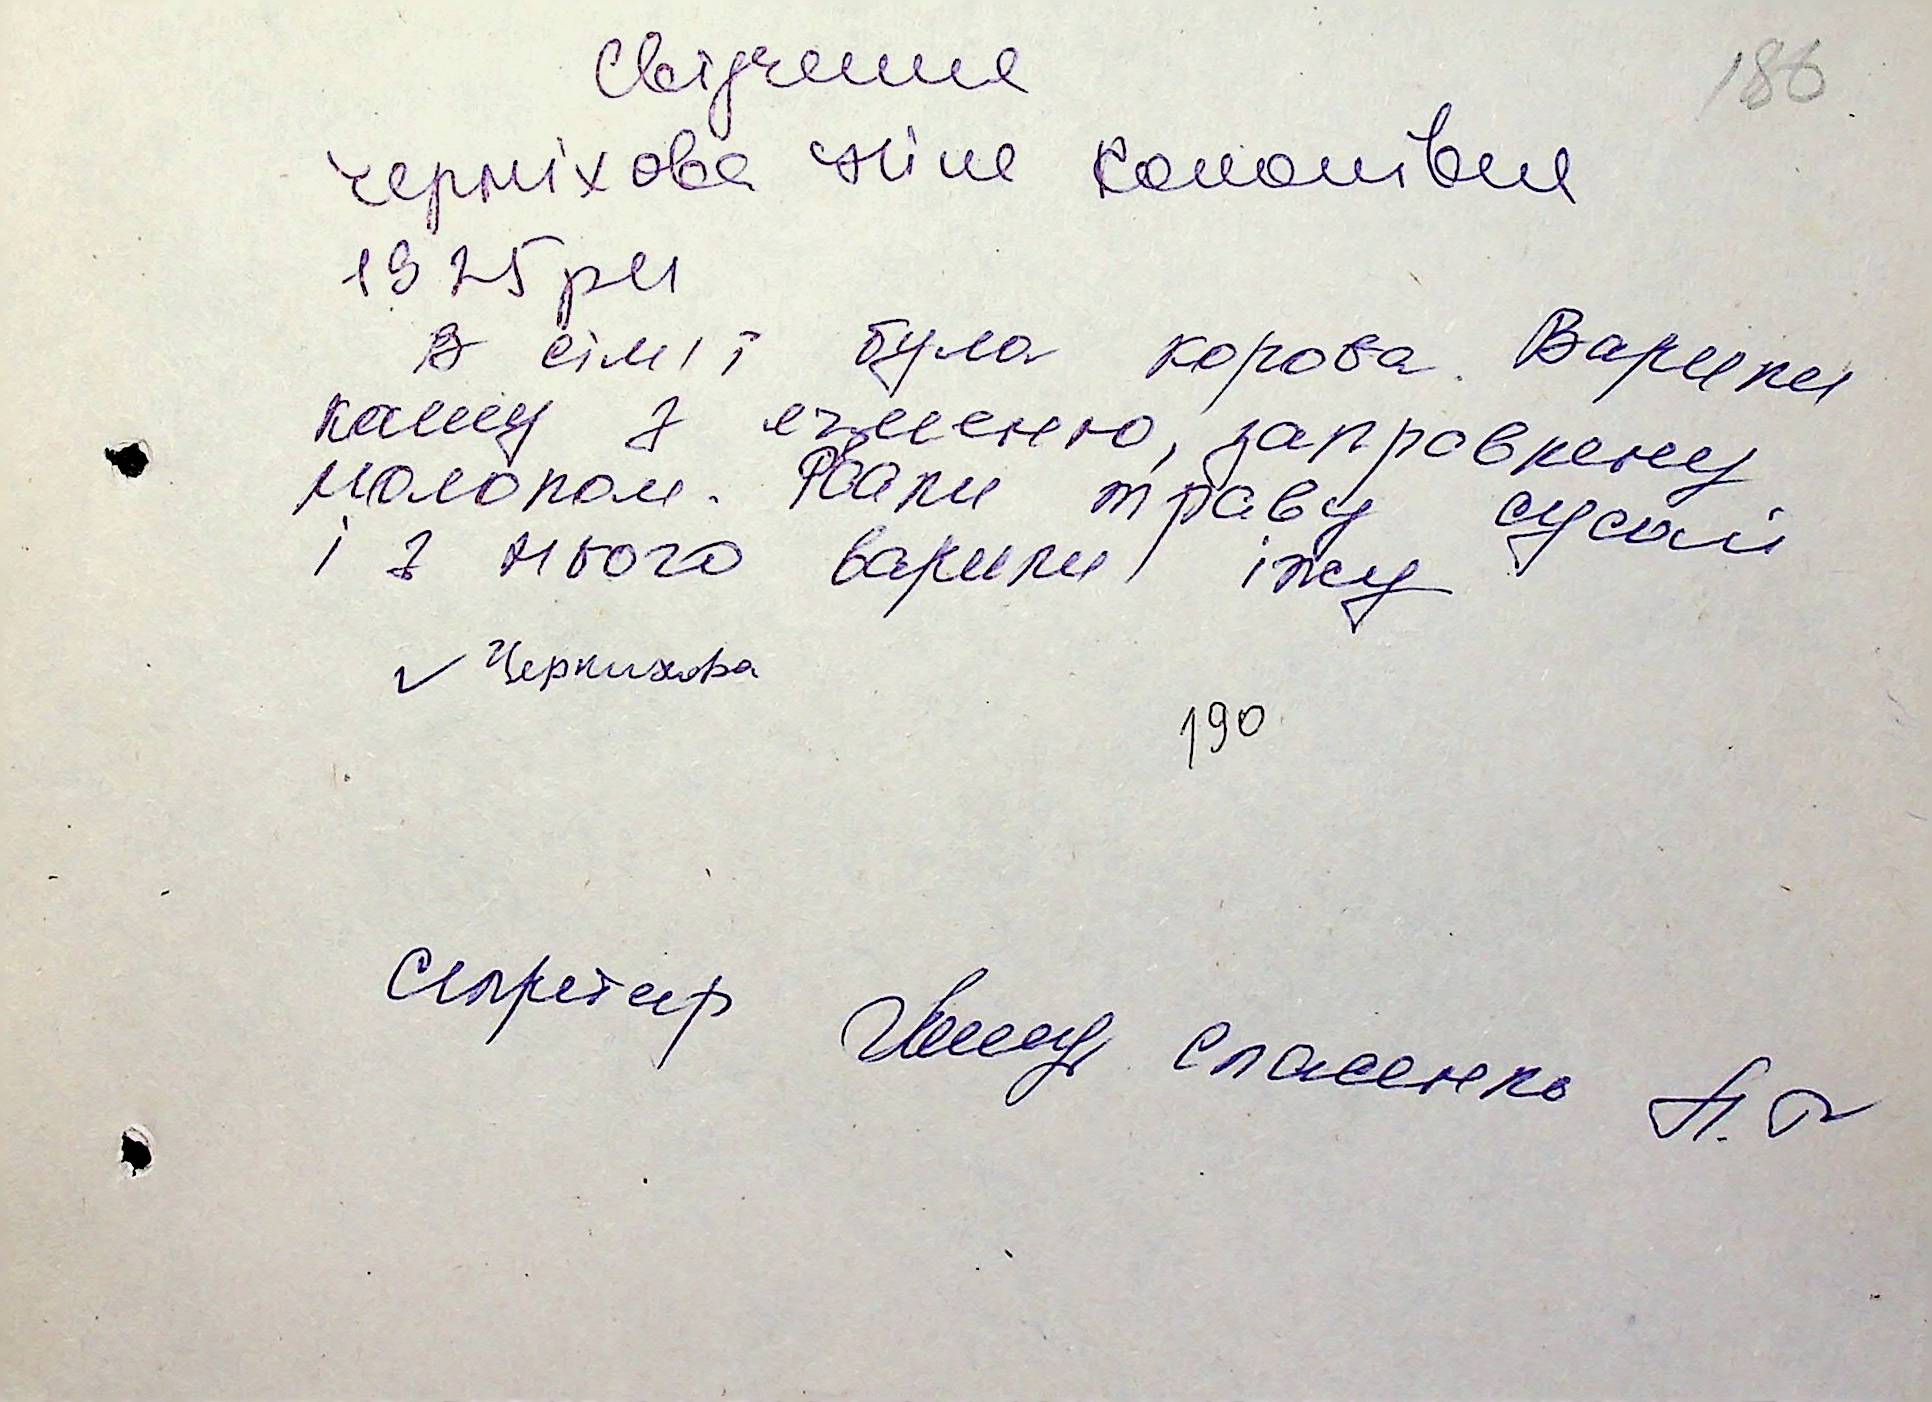 186
Свідчення
Черніхова Ніна Кононівна
1925 рн
В сімї була корова. Варили
кашу з ячменю, заправлену
молоком. Рвали траву сусай
і з нього варили їжу
Чернихова
190
Секретар Спасенко Н.